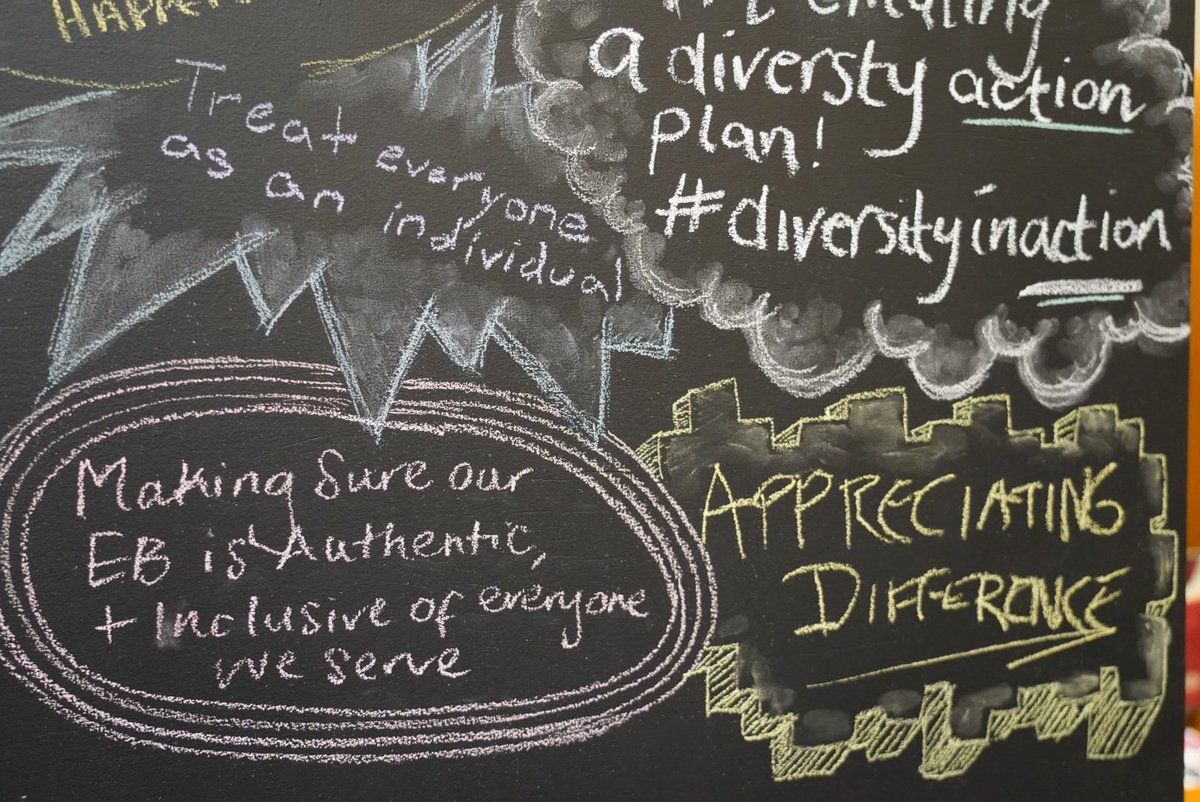 HAPPEN
a diversty action
plan!
#diversityinaction
Treat everyone
as an individual
Making Sure our
EB is Authentic,
+ Inclusive of everyone
we serve
APPRECIATING
DIFFERENCE